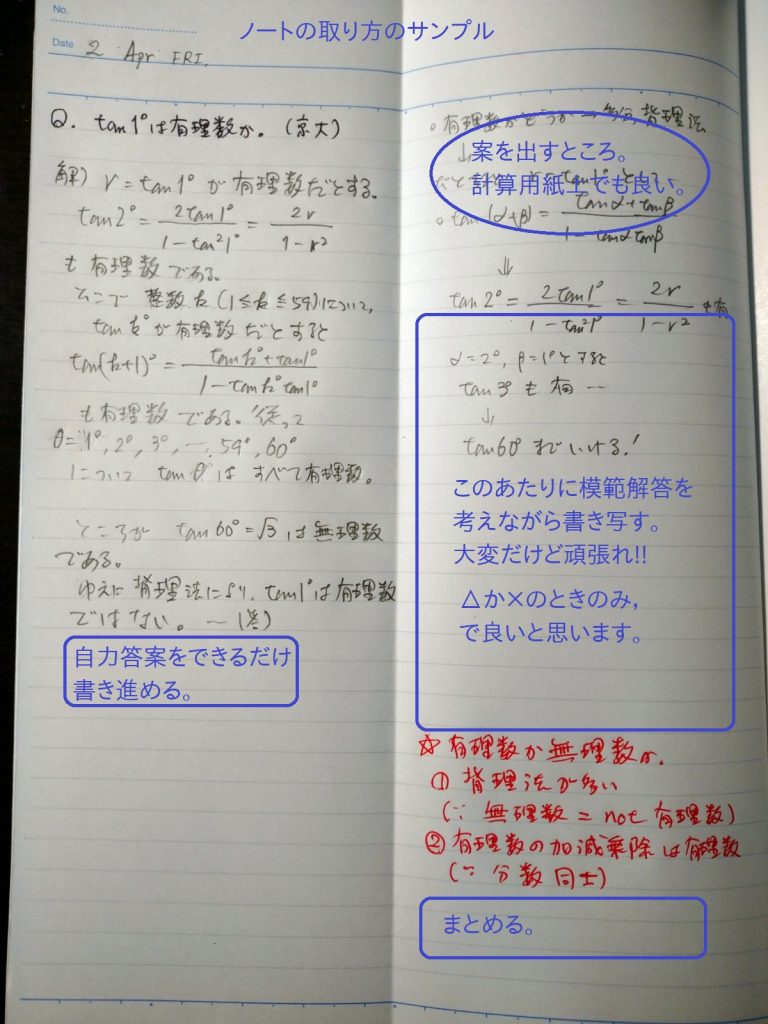 ノートの取り方のサンプル
No.
Date 2 Apr FRI.
Q. tan1°は有理数か。(京大)
解) r=tan1°が有理数だとする。
tan2°= 2tan1° / 1-tan²1° = 2r / 1-r²
も有理数である。
そこで 整数k(1≦k≦59)について,
tank°が有理数だとすると
tan(k+1)°= tank°+tan1° / 1-tank°tan1°
も有理数である。従って
θ=1°,2°,3°,…,59°,60°
について tanθ°はすべて有理数。
ところが tan60°=√3は無理数
である。
ゆえに背理法により,tan1°は有理数
ではない。―(答)
自力答案をできるだけ
書き進める。
。有理数かどうか→多分背理法
↓
案を出すところ。
計算用紙上でも良い。
。tan(α+β)= tanα+tanβ / 1-tanαtanβ
⇓
tan2°= 2tan1° / 1-tan²1° = 2r / 1-r² も有
α=2°,β=1°とすると
tan3°も有…
↓
tan60°までいける!
このあたりに模範解答を
考えながら書き写す。
大変だけど頑張れ!!
△か×のときのみ,
で良いと思います。
☆有理数か無理数か.
①背理法が多い
(∵ 無理数 = not 有理数)
②有理数の加減乗除は有理数
(∵ 分数同士)
まとめる。